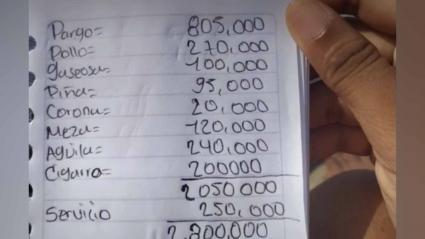 Pargo= 805,000
Pollo= 270,000
gaseosa= 100,000
Piña= 95,000
Corona= 20,000
Meza= 120,000
Aguila= 240,000
Cigarro= 200000
2050000
Servicio 250,000